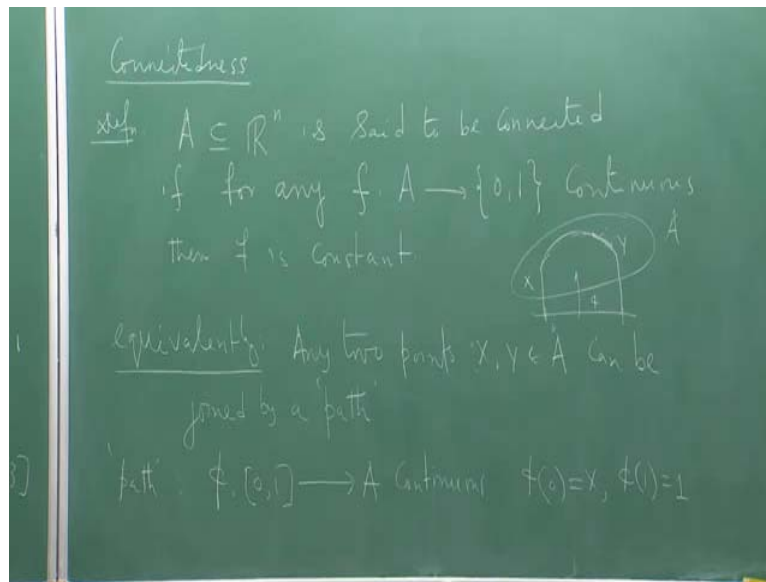 Connectedness
Defn. A ⊆ ℝⁿ is said to be connected
if for any f: A → {0,1} continuous
then f is constant.
X Y A
ϕ
equivalently: Any two points X, Y ∈ A can be
joined by a 'path'
'path': ϕ: [0,1] → A continuous ϕ(0)=X, ϕ(1)=1
]